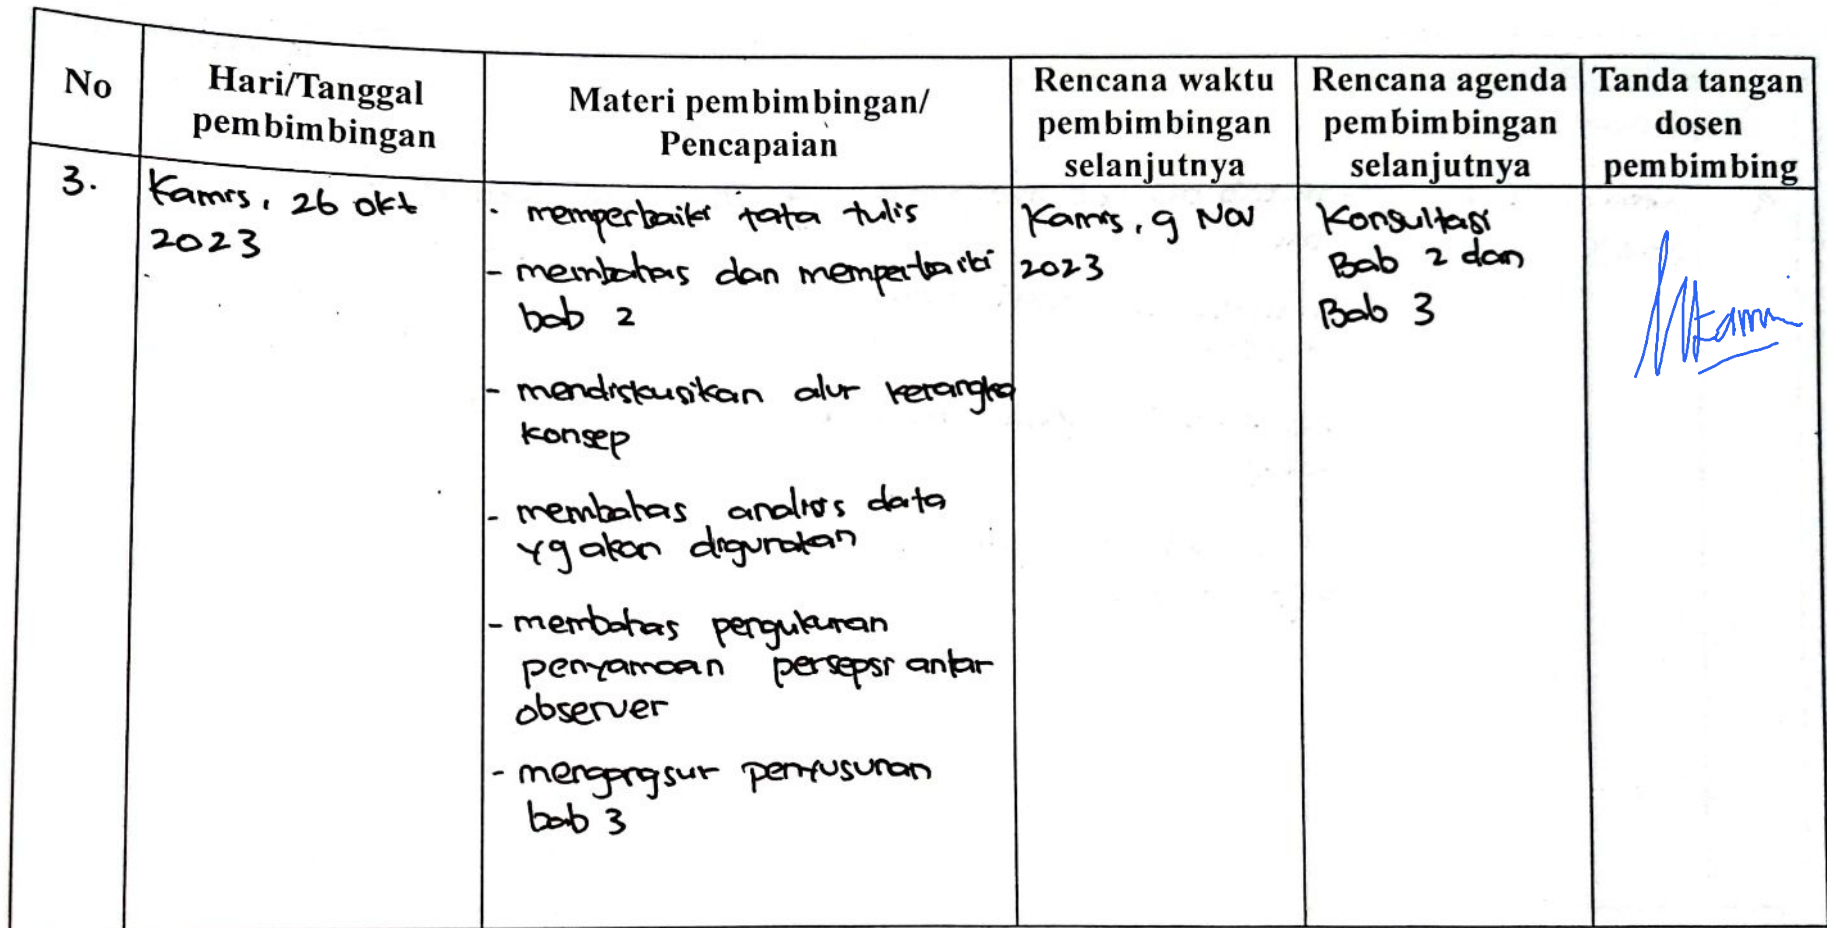 No
Hari/Tanggal
pembimbingan
Materi pembimbingan/
Pencapaian
Rencana waktu
pembimbingan
selanjutnya
Rencana agenda
pembimbingan
selanjutnya
Tanda tangan
dosen
pembimbing
3.
Kamis, 26 okt
2023
- memperbaiki tata tulis
- membahas dan memperbaiki
bab 2
- mendiskusikan alur kerangka
konsep
- membahas analisis data
yg akan digunakan
- membahas pengukuran
penyamaan persepsi antar
observer
- mengangsur penyusunan
bab 3
Kamis, 9 Nov
2023
Konsultasi
Bab 2 dan
Bab 3